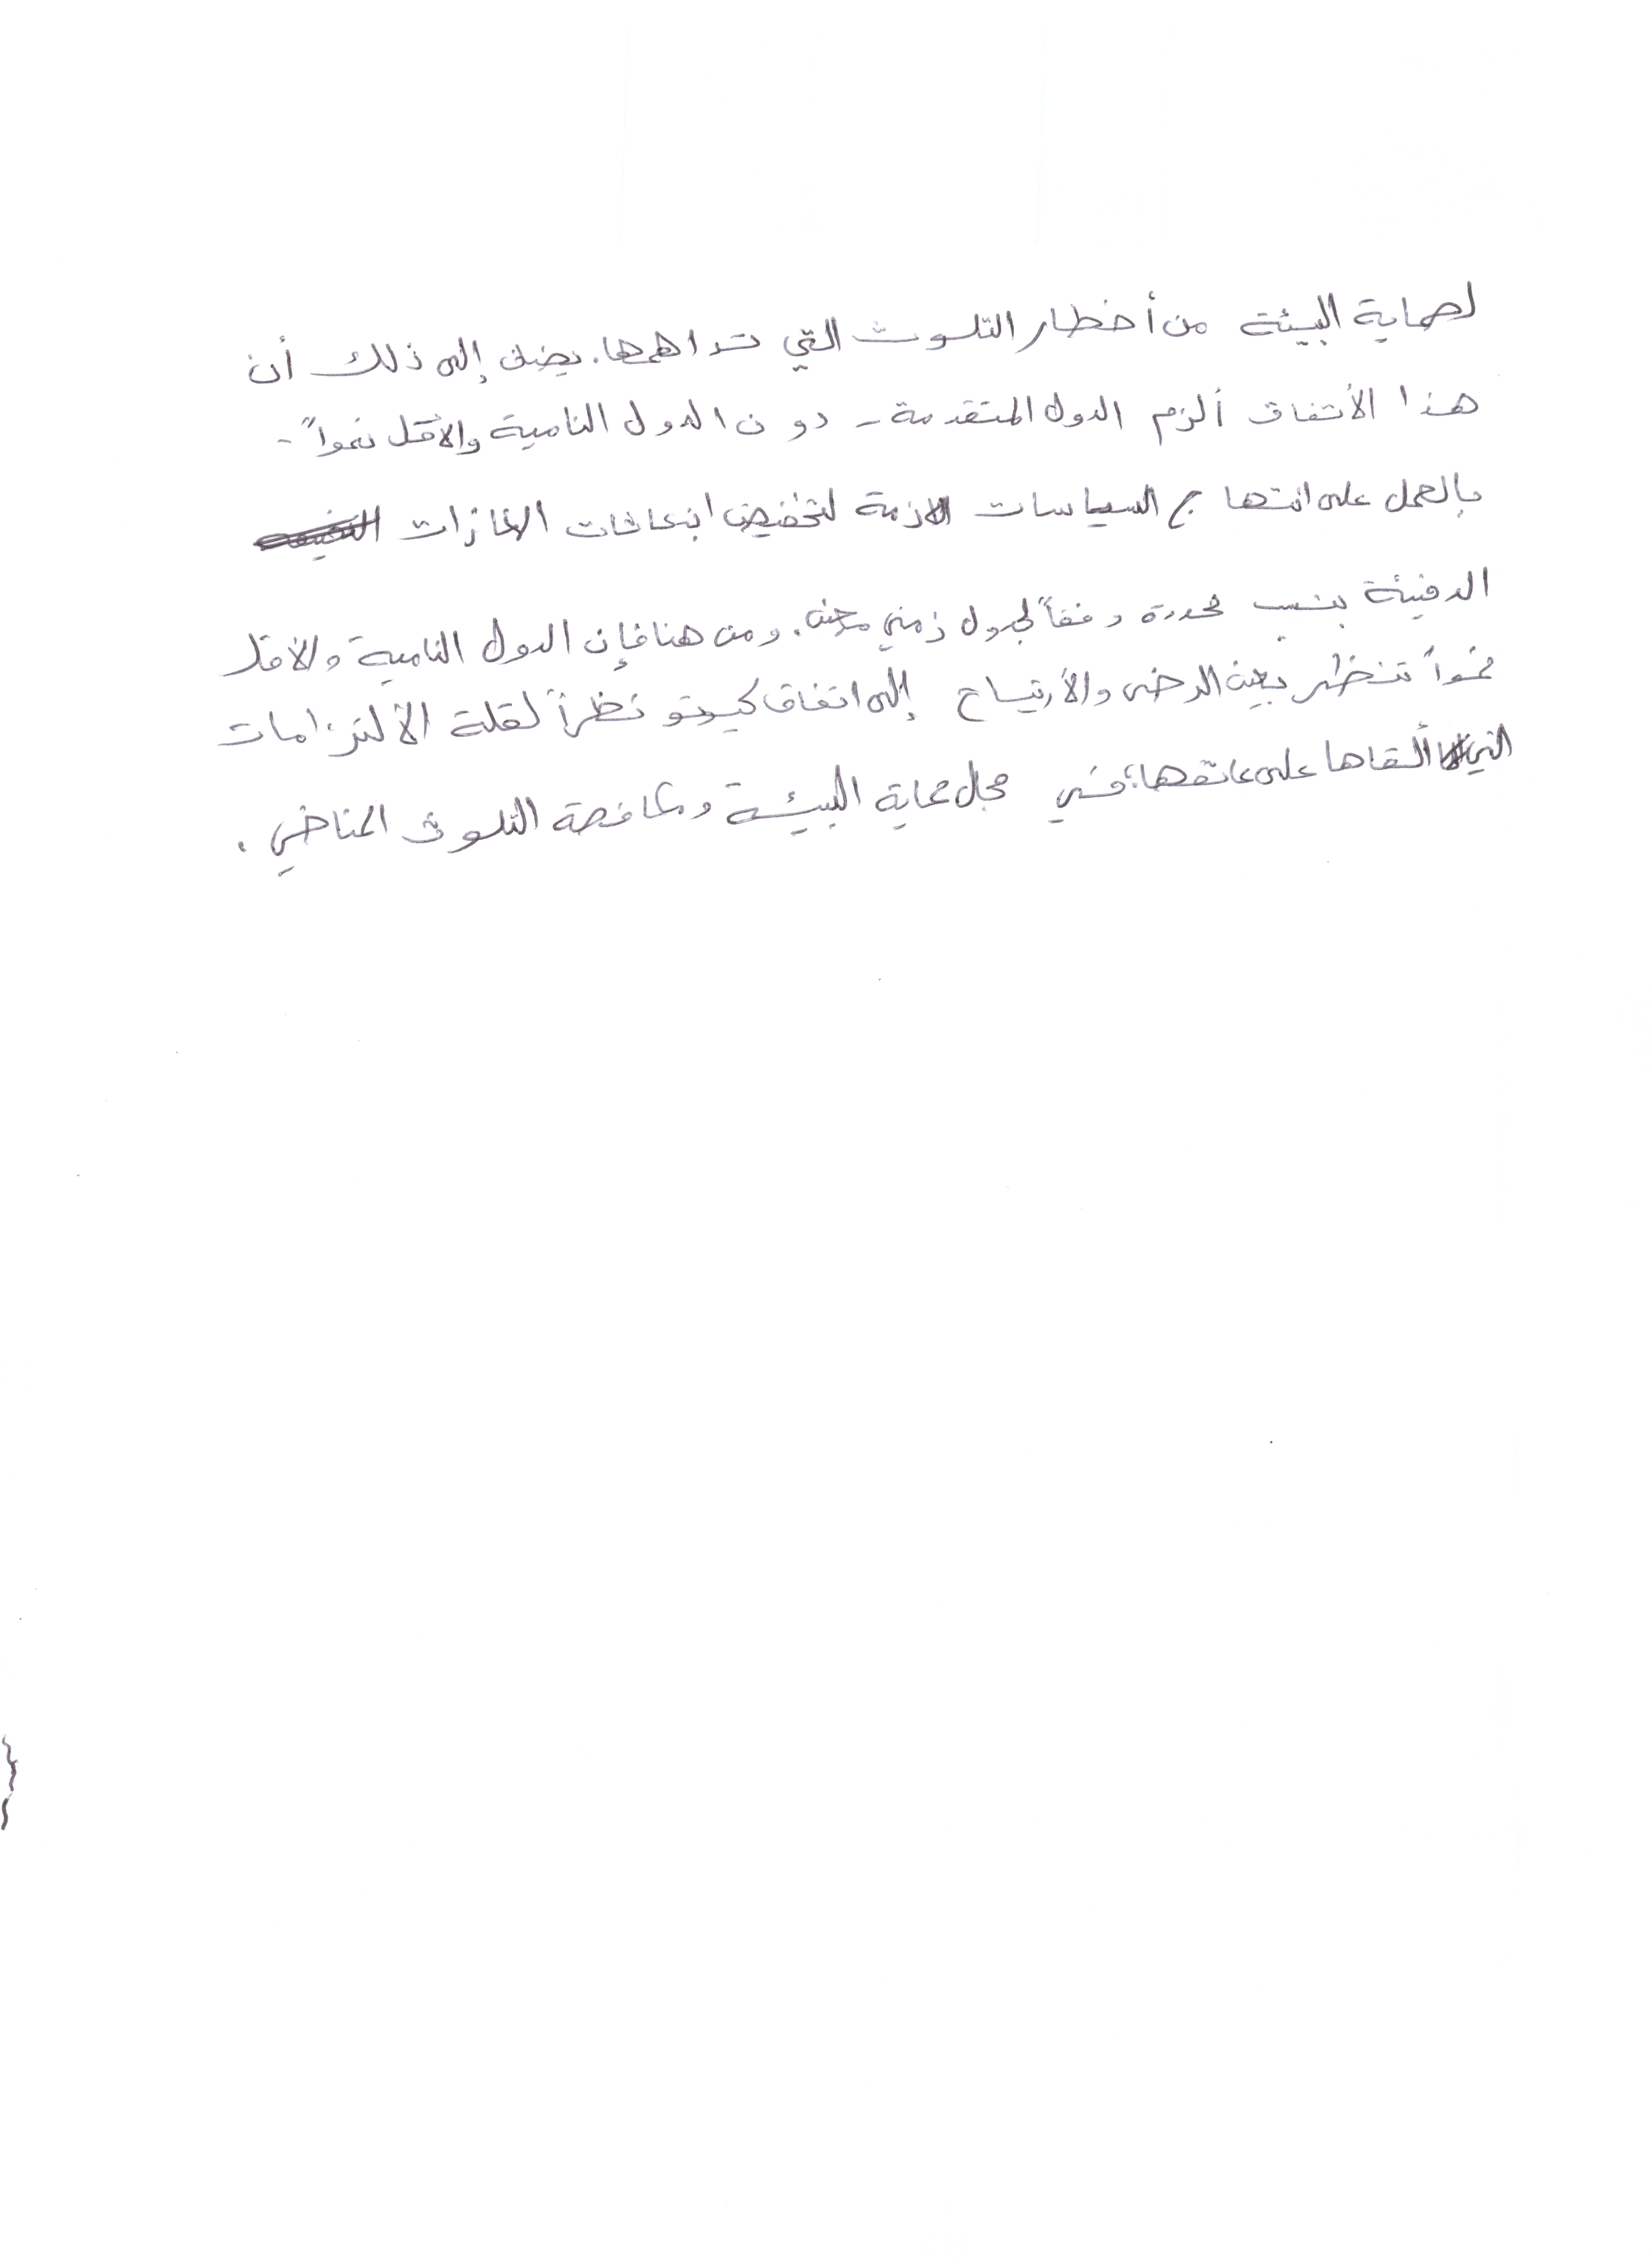 لحماية البيئة من أخطار التلوث التي تداهمها. يضاف إلى ذلك أن
هذا الأتفاق ألزم الدول المتقدمة - دون الدول النامية والأقل نمواً -
بالعمل على انتهاج السياسات الازمة لتخفيض انبعاثات الغازات
الدفيئة بنسب محددة وفقاً لجدول زمني معين. ومن هنا فإن الدول النامية والأقل
نمواً تنظر بعين الرضى والأرتياح إلى اتفاق كيوتو نظراً لقلة الألتزامات
التي ألقاها على عاتقها، في مجال حماية البيئة ومكافحة التلوث المناخي.